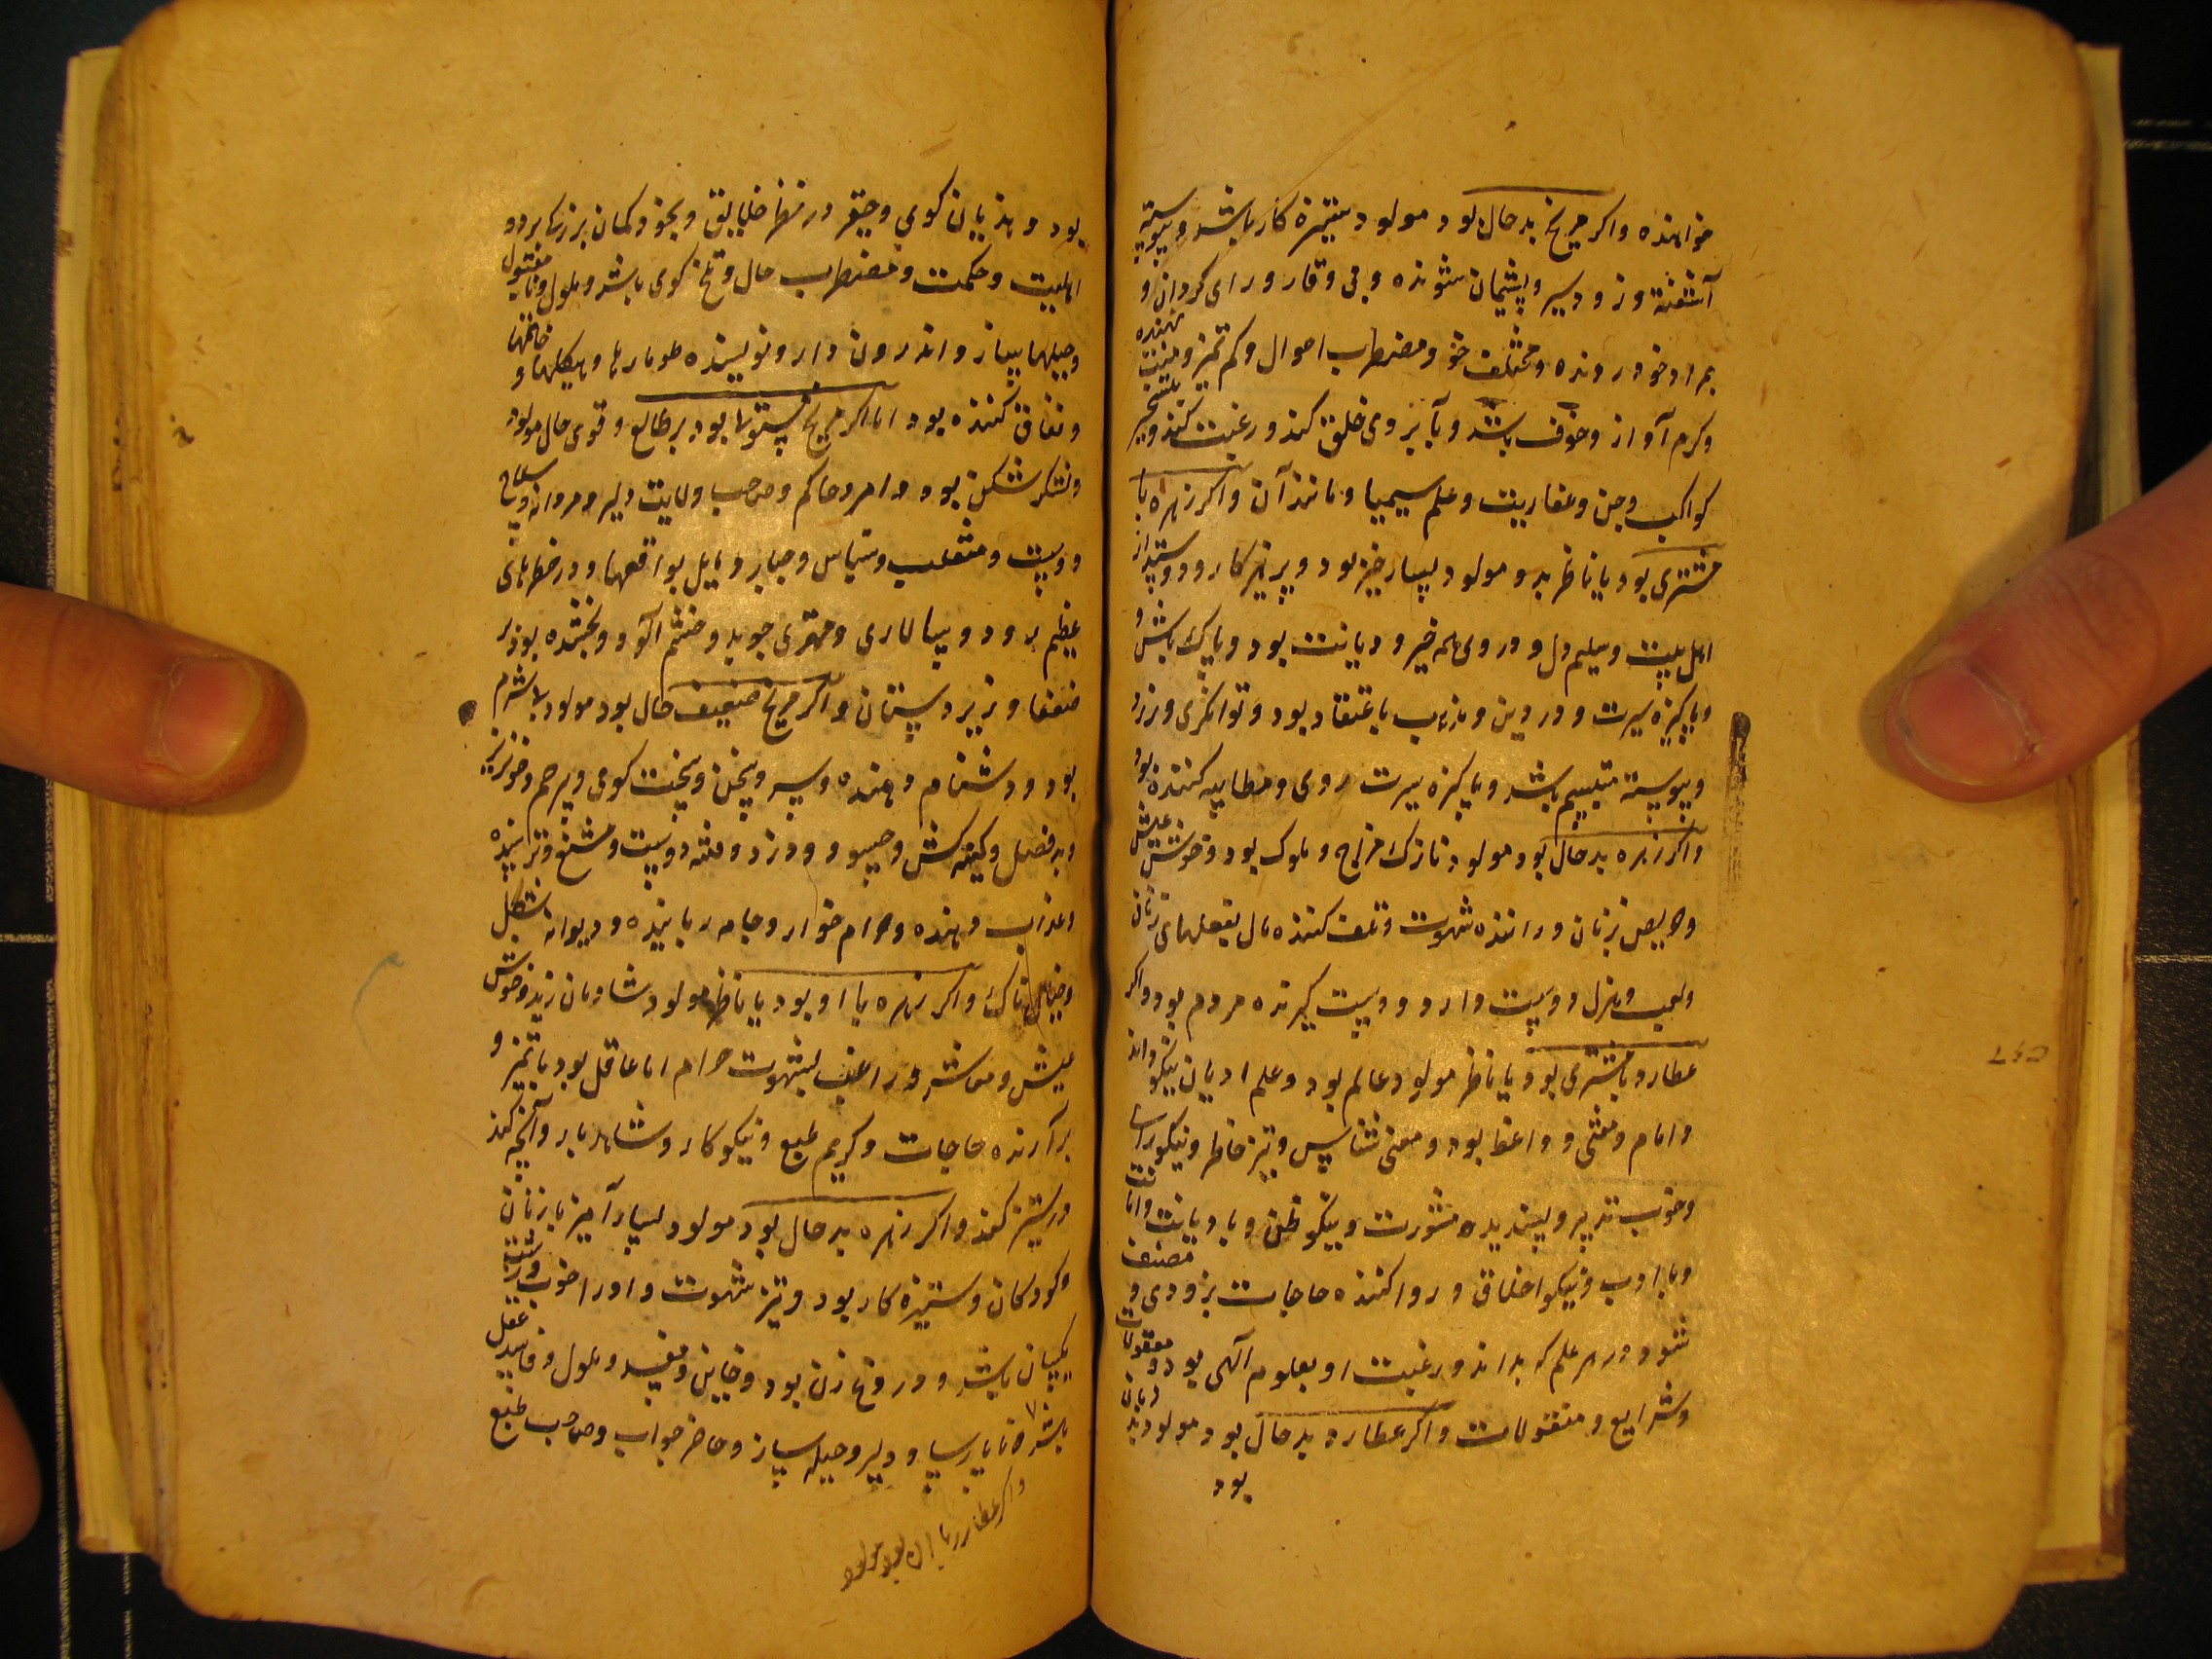 خواهنده واکر مریخ بدحال بود مولود ستیزه کار باشد و پیوسته
آشفته و زود سیر و پشیمان شونده و بی وقار و رای کردان و
بمراد خود رونده و مختلف خو و مضطرب احوال و کم تمیز و منت نهنده
و کرم آواز و خوف باشد و بآبروی خلق کند و رغبت کند و بتسخیر
کواکب و جن و عفاریت و علم سیمیا و مانند آن واکر زهره با
مشتری بود یا ناظر بدو مولود بسیار خیر بود و پرهیزکار و دوستدار
اهل بیت و سلیم دل و در وی همه خیر و دیانت بود و پاک باش و
و پاکیزه سیرت و در دین و مذهب باعتقاد بود و توانکری ورزد
و پیوسته متبسم باشد و پاکیزه سیرت روی و مطایبه کننده بود
واکر زهره بدحال بود مولود نازک مزاج و ملوک بود و خوش عیش
و حریص زنان و راننده شهوت و تلف کننده مال بفعلهای زنان
و لعب و هزل دوست دارد و دوست کیرنده مردم بود واکر
عطارد با مشتری بود یا ناظر مولود عالم بود و علم ادیان نیکو داند
و امام و مفتی و واعظ بود و معنی شناس و تیز خاطر و نیکو رای
و خوب تدبیر و پسندیده مشورت و نیکو ظن و با دیانت و امانت
و با ادب و نیکو اخلاق و روا کننده حاجات بزودی و مصنف
شود در هر علم که بداند و رغبت او بعلوم آلهی بود و معقولات
و شرایع و منقولات واکر عطارد بدحال بود مولود بد زبان
بود
بود و هذیان کوی و حقیر در نظر خلایق و بخود کمان بزرکی برد و
اهلیت و حکمت و مضطرب حال و تلخ کوی باشد و ملول و نامقبول
و حیلها ساز و اندرون دار و نویسنده طومارها و هیکلها و خاتمها
و نفاق کننده بود اما اکر مریخ مستولی بود بر طالع و قوی حال مولود
لشکر شکن بود و امر و حاکم و صاحب ولایت دلیر و مردانه و سلاح
دوست و متغلب و سیاس و جبار و مایل بواقعها و در خطرهای
عظیم رود و سپاسالاری و مهتری جوید و خشم آلود و بخشنده بود بر
ضعفا و زیردستان واکر مریخ ضعیف حال بود مولود بی شرم
بود و دشنام دهنده و سیر و سخن و سخت کوی و بیرحم و خونریز
و بدفضل و کینه کش و حسود و دزد و فتنه دوست و مشنع و ترسنده
و عذاب دهنده و حرام خوار و جامه رباینده و دیوانه شکل
و خیالناک واکر زهره با او بود یا ناظر مولود شادمان زید و خوش
عیش و معاشر و راغب بشهوت حرام اما عاقل بود با تمیز و
برآرنده حاجات و کریم طبع و نیکوکار و شاهد باز و آنچه کند
در ستر کند واکر زهره بدحال بود مولود بسیار آمیز با زنان
و کودکان و ستیزه کار بود و تیز شهوت و او را خوب و زشت
یکسان باشد و دروغ زن بود و خاین و مفسد و ملول و فاسد عقل
باشد و ناپارسا و دلیر و حیله ساز و حاضر جواب و صاحب طبع
واکر عطارد با او بود مولود